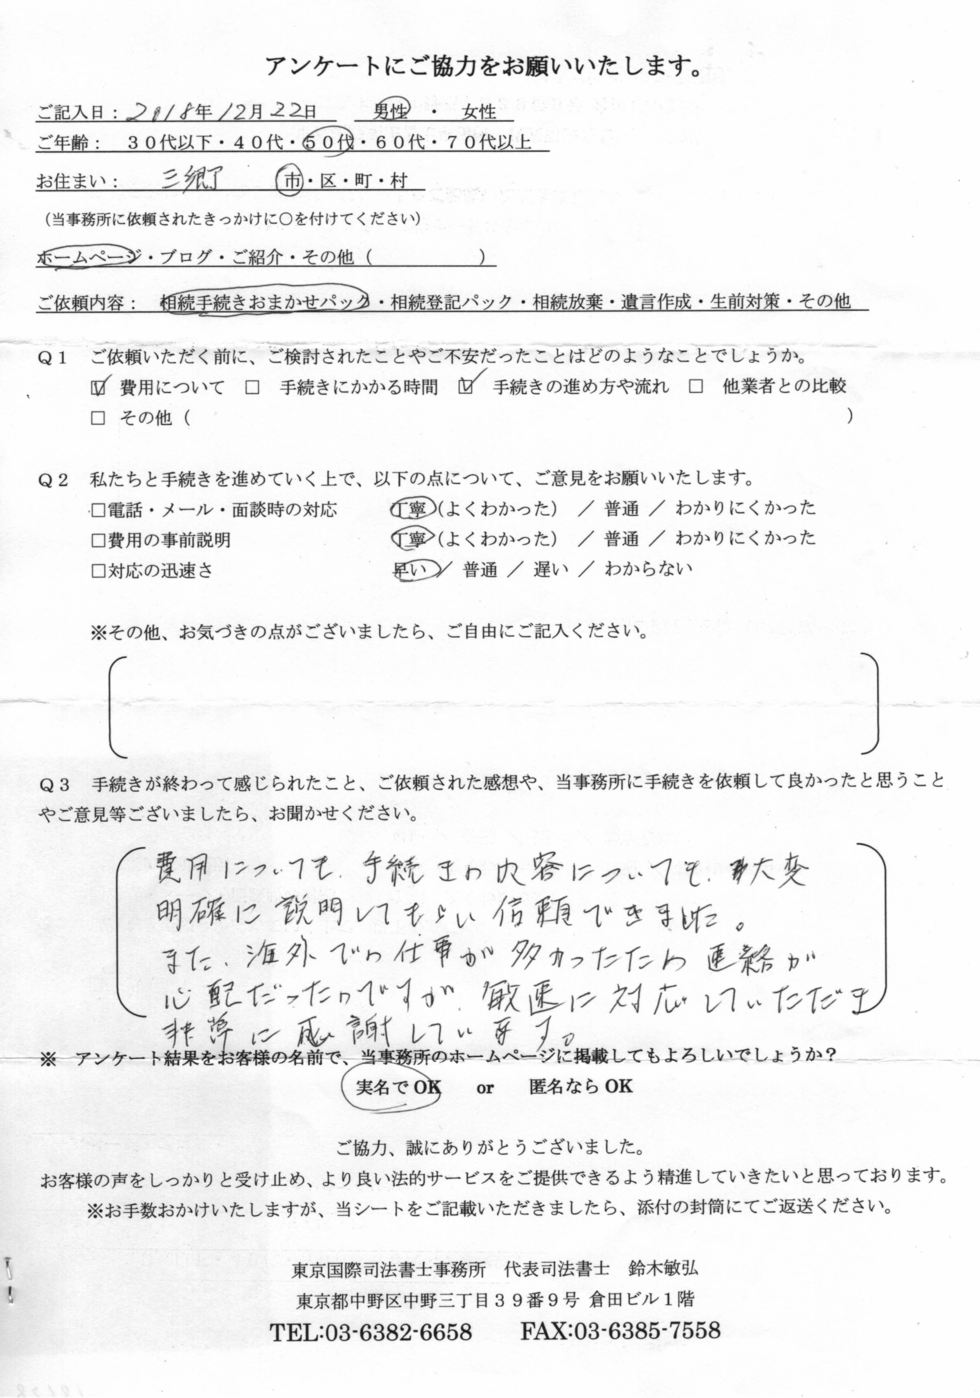 アンケートにご協力をお願いいたします。
ご記入日：2018年12月22日　男性　・　女性
ご年齢：　３０代以下・４０代・５０代・６０代・７０代以上
お住まい：　三郷　市・区・町・村
（当事務所に依頼されたきっかけに○を付けてください）
ホームページ・ブログ・ご紹介・その他（　　　　　　）
ご依頼内容：　相続手続きおまかせパック・相続登記パック・相続放棄・遺言作成・生前対策・その他
Ｑ１　ご依頼いただく前に、ご検討されたことやご不安だったことはどのようなことでしょうか。
☑ 費用について　□　手続きにかかる時間　☑　手続きの進め方や流れ　□　他業者との比較
□ その他（　　　　　　　　　　　　　　　　　　）
Ｑ２　私たちと手続きを進めていく上で、以下の点について、ご意見をお願いいたします。
□電話・メール・面談時の対応　　丁寧（よくわかった）　／ 普通 ／ わかりにくかった
□費用の事前説明　　丁寧（よくわかった）　／ 普通 ／ わかりにくかった
□対応の迅速さ　　早い ／ 普通 ／ 遅い ／ わからない
※その他、お気づきの点がございましたら、ご自由にご記入ください。
Ｑ３　手続きが終わって感じられたこと、ご依頼された感想や、当事務所に手続きを依頼して良かったと思うこと
やご意見等ございましたら、お聞かせください。
費用についても、手続きの内容についても、大変
明確に説明してもらい信頼できました。
また、海外での仕事が多かったため連絡が
心配だったのですが、敏速に対応していただき
非常に感謝しています。
※　アンケート結果をお客様の名前で、当事務所のホームページに掲載してもよろしいでしょうか？
実名でOK　　or　　匿名ならOK
ご協力、誠にありがとうございました。
お客様の声をしっかりと受け止め、より良い法的サービスをご提供できるよう精進していきたいと思っております。
※お手数おかけいたしますが、当シートをご記載いただきましたら、添付の封筒にてご返送ください。
東京国際司法書士事務所　代表司法書士　鈴木敏弘
東京都中野区中野三丁目３９番９号 倉田ビル１階
TEL:03-6382-6658　　FAX:03-6385-7558